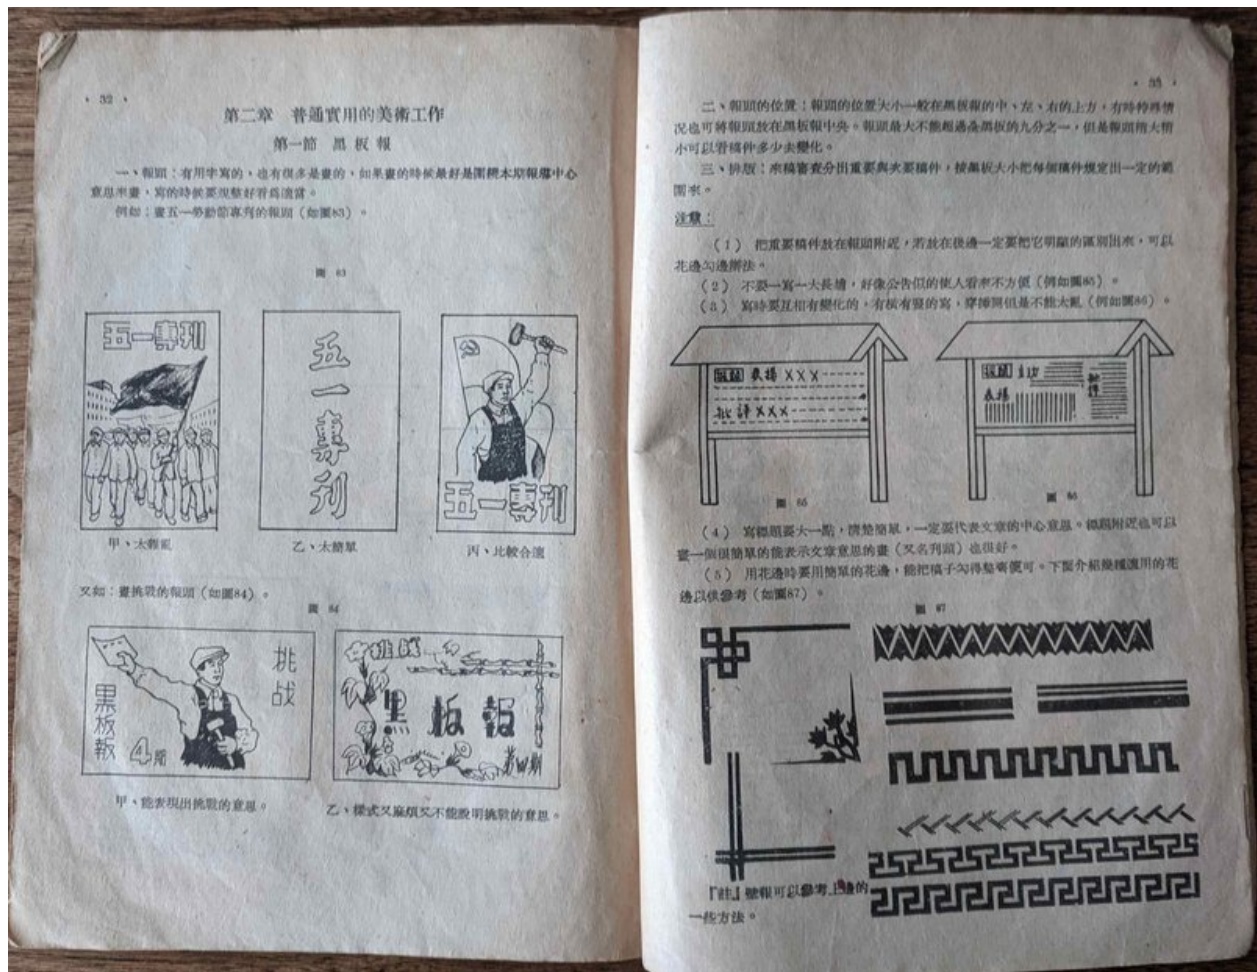 · 32 ·
第二章 普通實用的美術工作
第一節 黑板報
一、報頭：有用字寫的，也有很多是畫的，如果畫的時候最好是圍繞本期報導中心
意思來畫，寫的時候要規整好看爲適當。
例如：畫五一勞動節專刋的報頭（如圖83）。
圖 83
五一專刋
五一專刋
五一專刋
甲、太雜亂
乙、太簡單
丙、比較合適
又如：畫挑戰的報頭（如圖84）。
圖 84
挑战
黑板報
4期
挑战
黑板報
第四期
甲、能表現出挑戰的意思。
乙、樣式又麻煩又不能說明挑戰的意思。
· 33 ·
二、報頭的位置：報頭的位置大小一般在黑板報的中、左、右的上方，有時特殊情
况也可將報頭放在黑板報中央。報頭最大不能超過全黑板的九分之一，但是報頭稍大稍
小可以看稿件多少去變化。
三、排版：來稿審查分出重要與次要稿件，按黑板大小把每個稿件規定出一定的範
圍來。
注意：
（1） 把重要稿件放在報頭附近，若放在後邊一定要把它明顯的區別出來，可以
花邊勾邊辦法。
（2） 不要一寫一大長墻，好像公告似的使人看來不方便（例如圖85）。
（3） 寫時要互相有變化的，有橫有豎的寫，穿揷開但是不能太亂（例如圖86）。
報頭 表揚 XXX
批評 XXX
報頭
表揚
批評
圖 85
圖 86
（4） 寫標題要大一點，淸楚簡單，一定要代表文章的中心意思。標題附近也可以
畫一個很簡單的能表示文章意思的畫（又名刋頭）也很好。
（5） 用花邊時要用簡單的花邊，能把稿子勾得整齊便可。下面介紹幾種適用的花
邊以供參考（如圖87）。
圖 87
『註』壁報可以參考上邊的
一些方法。